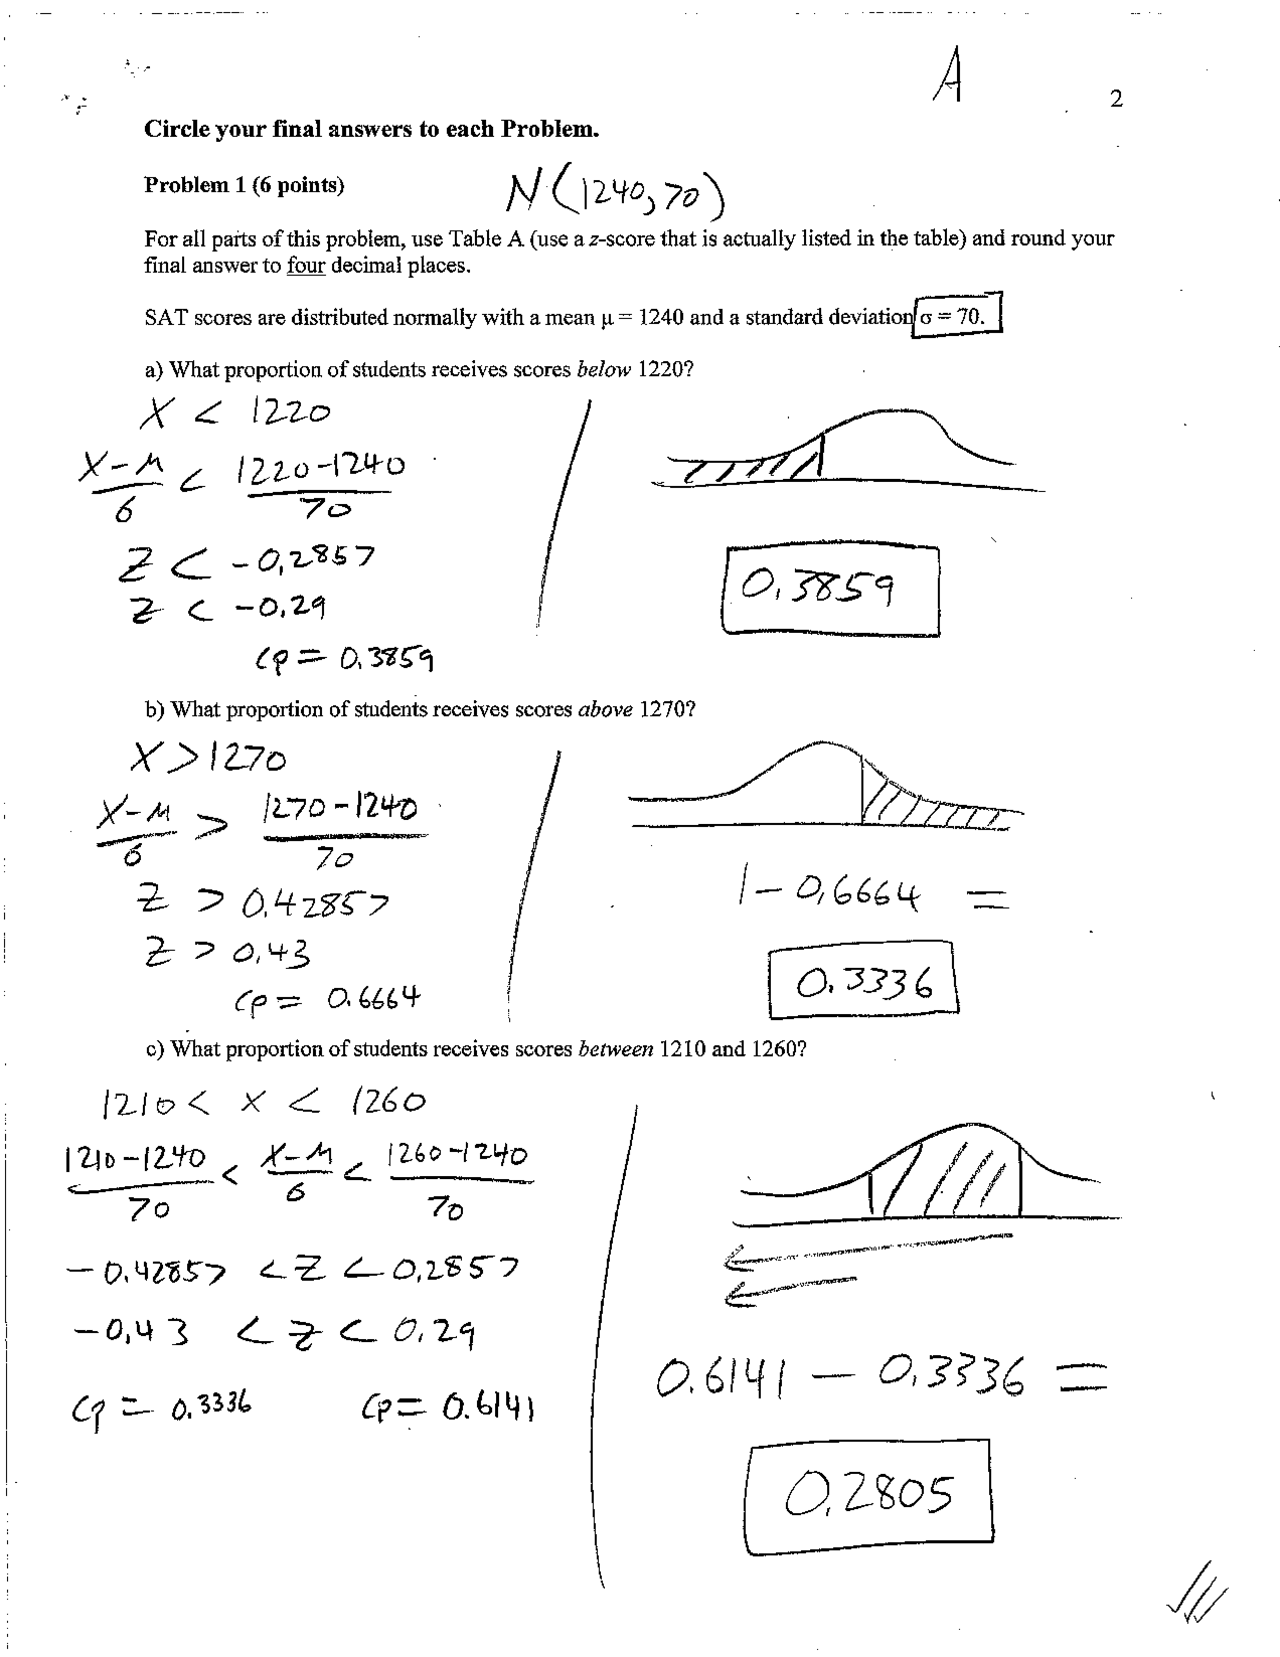 A
2
Circle your final answers to each Problem.
Problem 1 (6 points)
N(1240,70)
For all parts of this problem, use Table A (use a z-score that is actually listed in the table) and round your
final answer to four decimal places.
SAT scores are distributed normally with a mean μ = 1240 and a standard deviation σ = 70.
a) What proportion of students receives scores below 1220?
X < 1220
X-μ / σ < 1220-1240 / 70
Z < -0.2857
Z < -0.29
cp = 0.3859
0.3859
b) What proportion of students receives scores above 1270?
X > 1270
X-μ / σ > 1270-1240 / 70
Z > 0.42857
Z > 0.43
cp = 0.6664
1 - 0.6664 =
0.3336
c) What proportion of students receives scores between 1210 and 1260?
1210 < X < 1260
1210-1240 / 70 < X-μ / σ < 1260-1240 / 70
-0.42857 < Z < 0.2857
-0.43 < Z < 0.29
cp = 0.3336 cp = 0.6141
0.6141 - 0.3336 =
0.2805